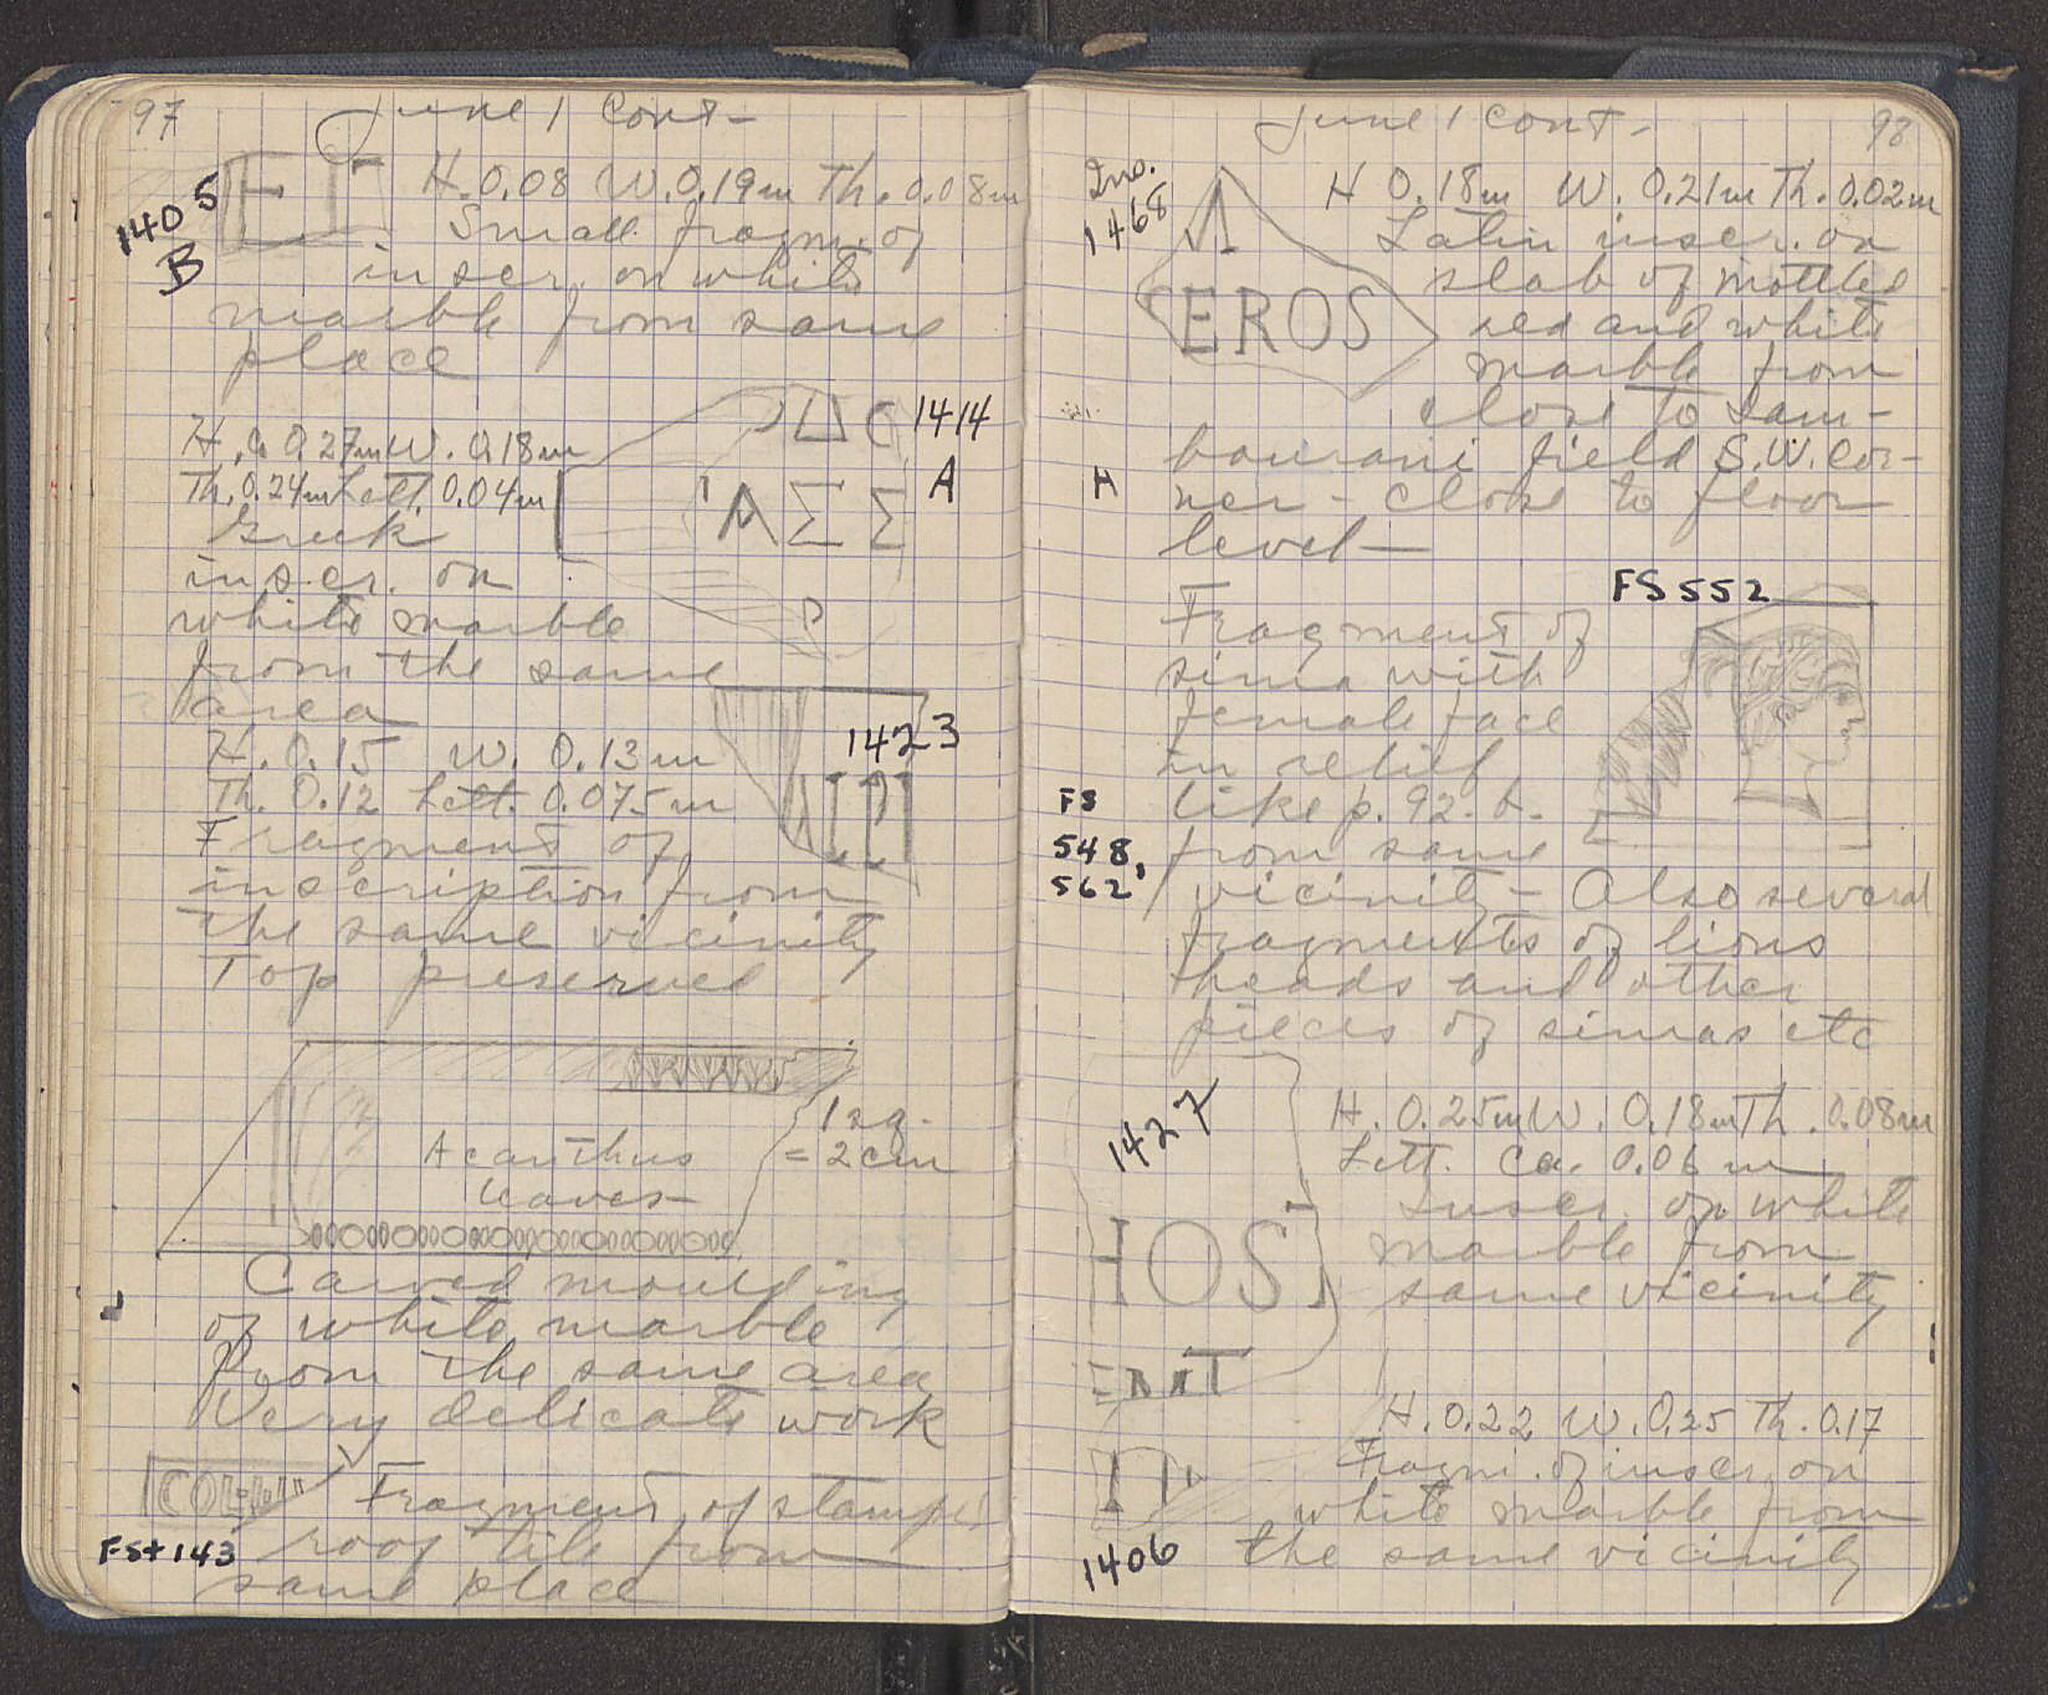 97
June 1 cont-
1405
B
H. 0.08 W. 0.19m Th. 0.08m
Small fragm. of
inscr. on white
marble from same
place
H. 0.27m W. 0.18m
Th. 0.24m Lett. 0.04m
Greek
inscr. on
white marble
from the same
area
1414
A
ΑΣΣ
H. 0.15 W. 0.13m
Th. 0.12 Lett. 0.075m
Fragment of
inscription from
the same vicinity
Top preserved
1423
1 sq.
= 2cm
Acanthus
leaves
Carved moulding
of white marble
from the same area
Very delicate work
COL
Fragment of stamped
FSt 143
roof tile from
same place
98
June 1 cont-
Ino.
1468
H 0.18m W. 0.21m Th. 0.02m
Latin inscr. on
slab of mottled
red and white
marble from
close to Lam-
bourani field S.W. Cor-
ner - close to floor
level—
EROS
H
FS 552
Fragment of
sima with
female face
in relief
like p. 92. b.
from same
vicinity - Also several
fragments of lions
heads and other
pieces of simas etc
FS
548,
562
1427
H. 0.25m W. 0.18m Th. 0.08m
Lett. ca. 0.06 m
Inscr. on white
marble from
same vicinity
HOS
H. 0.22 W. 0.25 Th. 0.17
Fragm. of inscr. on
white marble from
the same vicinity
1406